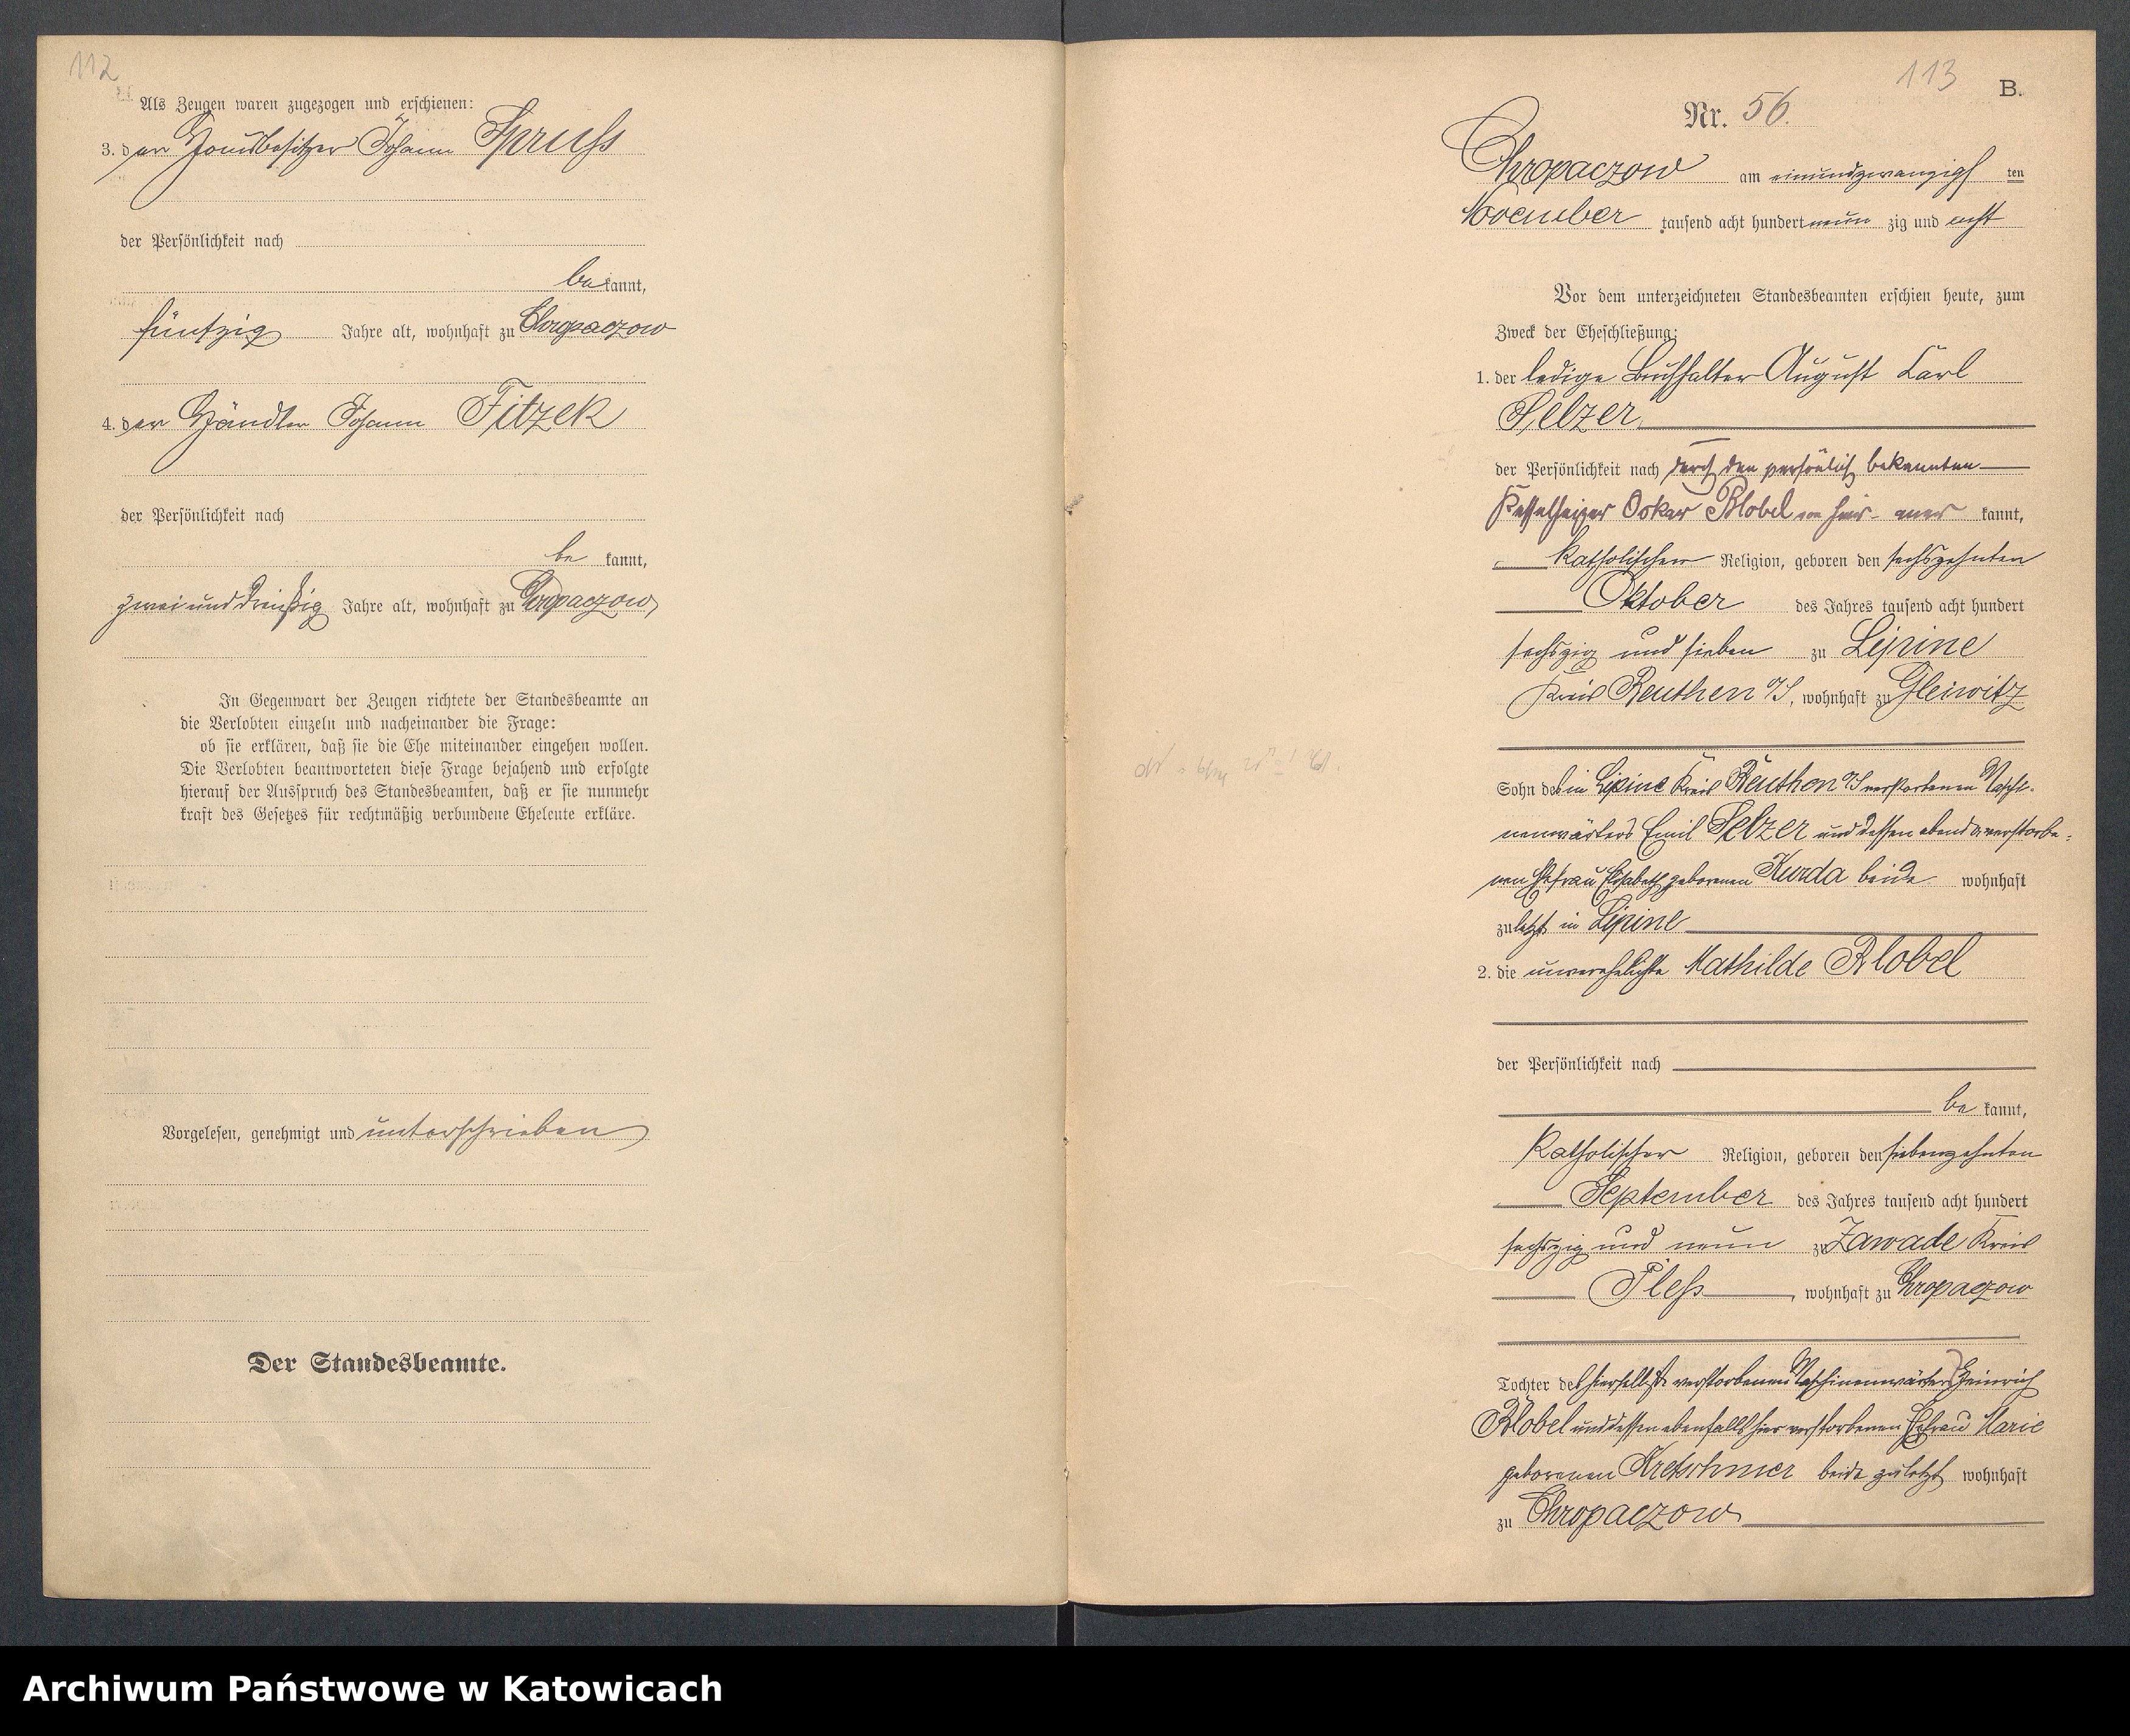 112
Als Zeugen waren zugezogen und erschienen:
3. der Hausbesitzer Johann Spruss
der Persönlichkeit nach
be kannt,
fünfzig Jahre alt, wohnhaft zu Chropaczow
4. der Händler Johann Fitzek
der Persönlichkeit nach
be kannt,
zwei und dreißig Jahre alt, wohnhaft zu Chropaczow
In Gegenwart der Zeugen richtete der Standesbeamte an
die Verlobten einzeln und nacheinander die Frage:
ob sie erklären, daß sie die Ehe miteinander eingehen wollen.
Die Verlobten beantworteten diese Frage bejahend und erfolgte
hierauf der Ausspruch des Standesbeamten, daß er sie nunmehr
kraft des Gesetzes für rechtmäßig verbundene Eheleute erkläre.
Vorgelesen, genehmigt und unterschrieben
Der Standesbeamte.
113
B.
Nr. 56.
Chropaczow am einundzwanzigs ten
November tausend acht hundert neun zig und acht
Vor dem unterzeichneten Standesbeamten erschien heute, zum
Zweck der Eheschließung:
1. der ledige Buchhalter August Carl
Selzer
der Persönlichkeit nach durch den persönlich bekannten
Kesselheizer Oskar Blobel von hier aner kannt,
katholischen Religion, geboren den sechszehnten
Oktober des Jahres tausend acht hundert
sechszig und sieben zu Lipine
Kreis Beuthen O/S, wohnhaft zu Gleiwitz
Sohn des in Lipine Kreis Beuthen O/S verstorbenen Maschi-
nenwärters Emil Selzer und dessen ebenda verstorbe-
nen Ehefrau Elisabeth geborenen Kurda beide wohnhaft
zuletzt in Lipine
2. die unverehelichte Mathilde Blobel
der Persönlichkeit nach
be kannt,
katholischer Religion, geboren den siebenzehnten
September des Jahres tausend acht hundert
sechszig und neun zu Zawade Kreis
Pless, wohnhaft zu Chropaczow
Tochter des hierselbst verstorbenen Maschinenwärters Heinrich
Blobel und dessen ebenfalls hier verstorbenen Ehefrau Marie
geborenen Kretschmer beide zuletzt wohnhaft
zu Chropaczow
Archiwum Państwowe w Katowicach